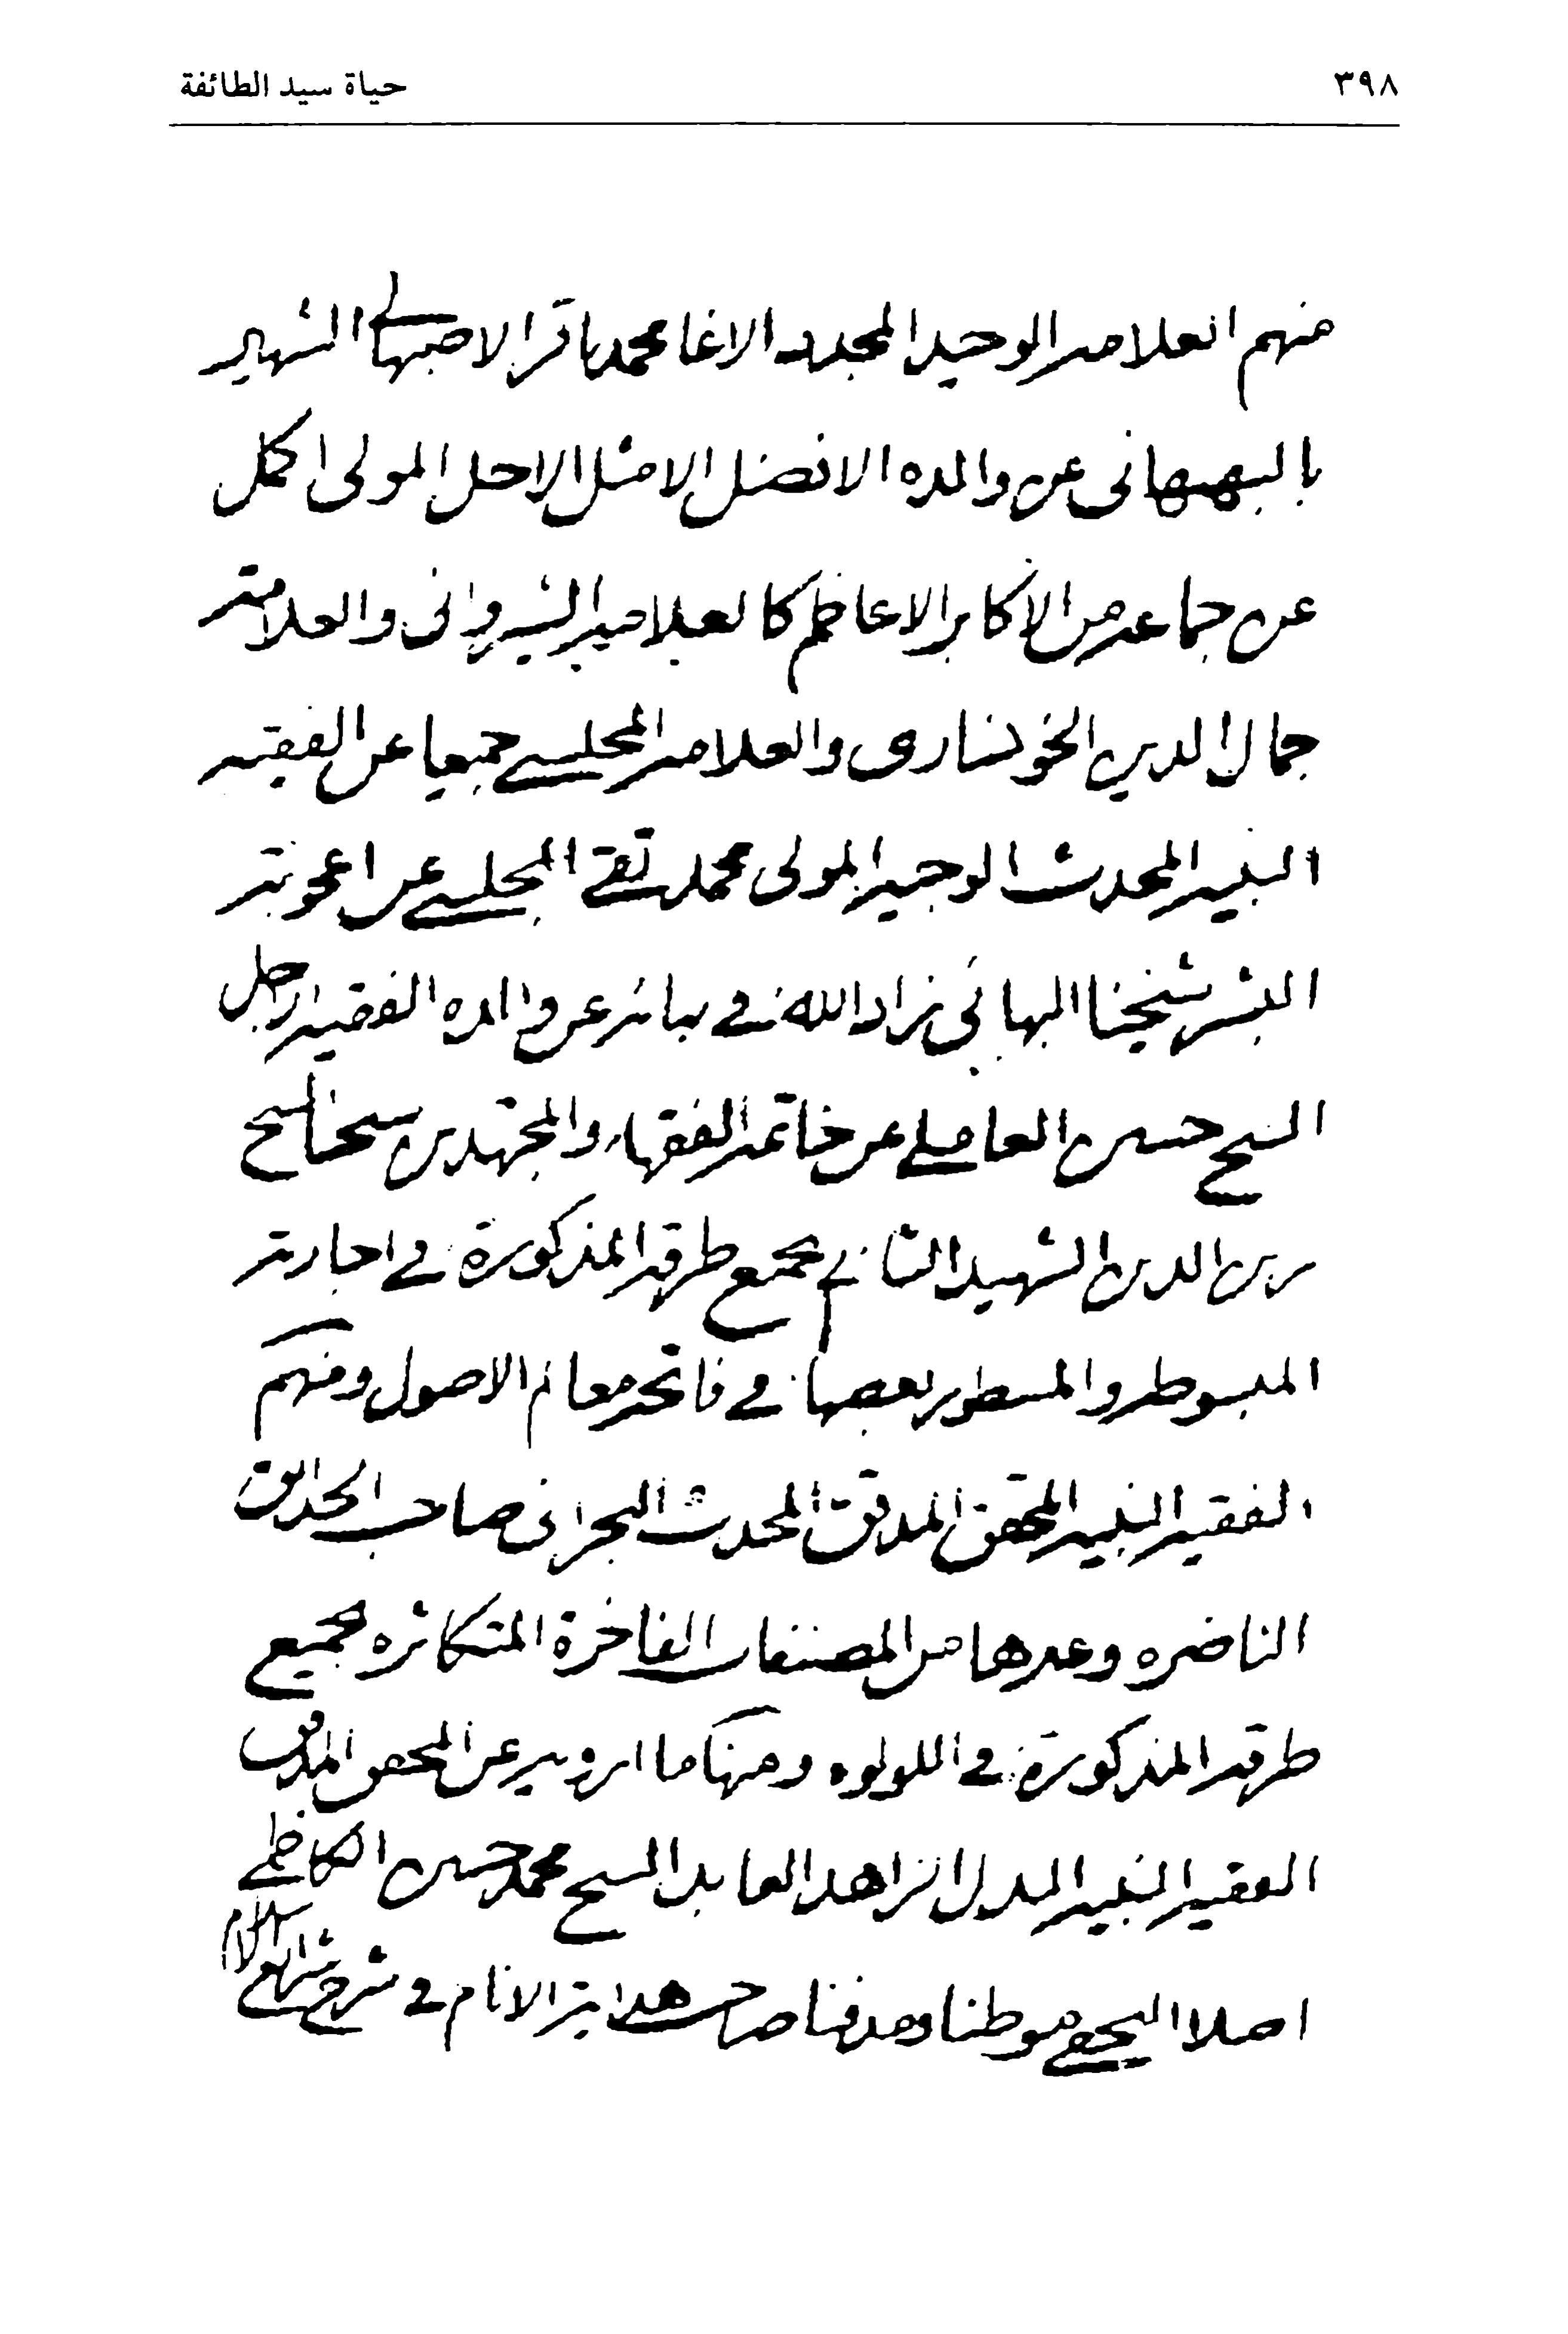 ٣٩٨ حياة سيد الطائفة
منهم العلامة الوحيد المجدد الاغا محمد باقر الاصبهاني الشهير
بالبهبهاني عن والده الافضل الامثل الاجل المولى اكمل
عن جماعة من الاكابر الاعاظم كالعلامة الشيرواني والعلامة
جمال الدين الخونساري والعلامة المجلسي جميعا عن الفقيه
النبيه المحدث الوجيه المولى محمد تقي المجلسي عن اعجوبة
البشر شيخنا البهائي زاد الله في بهائه عن والده الفقيه الاجل
الشيخ حسين العاملي عن خاتمة الفقهاء والمجتهدين شيخنا الشيخ
زين الدين الشهيد الثاني بجميع طرقه المذكورة في اجازته
المبسوطة والمسطور بعضها في فاتحة معالم الاصول ومنهم
الفقيه النبيه المحقق المدقق المحدث البحراني صاحب الحدائق
الناضره وغيرها من المصنفات الفاخرة المتكاثره بجميع
طرقه المذكورة في اللولوه ومنها ما ارويه عن المحقق المدقق
الفقيه النبيه الزاهد العابد الشيخ محمد حسين الكاظمي
اصلا النجفي موطنا ومدفنا صاحب هداية الانام في شرح شرايع الاسلام